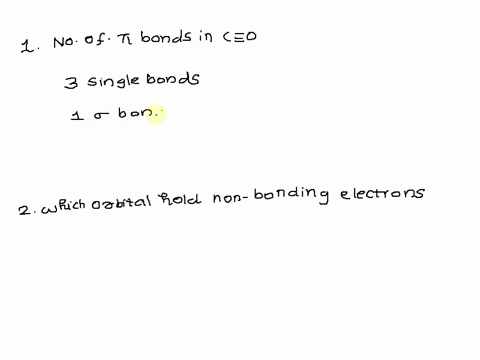 1. No. of. π bonds in C≡O
3 single bonds
1 σ bon.
2. which orbital hold non-bonding electrons